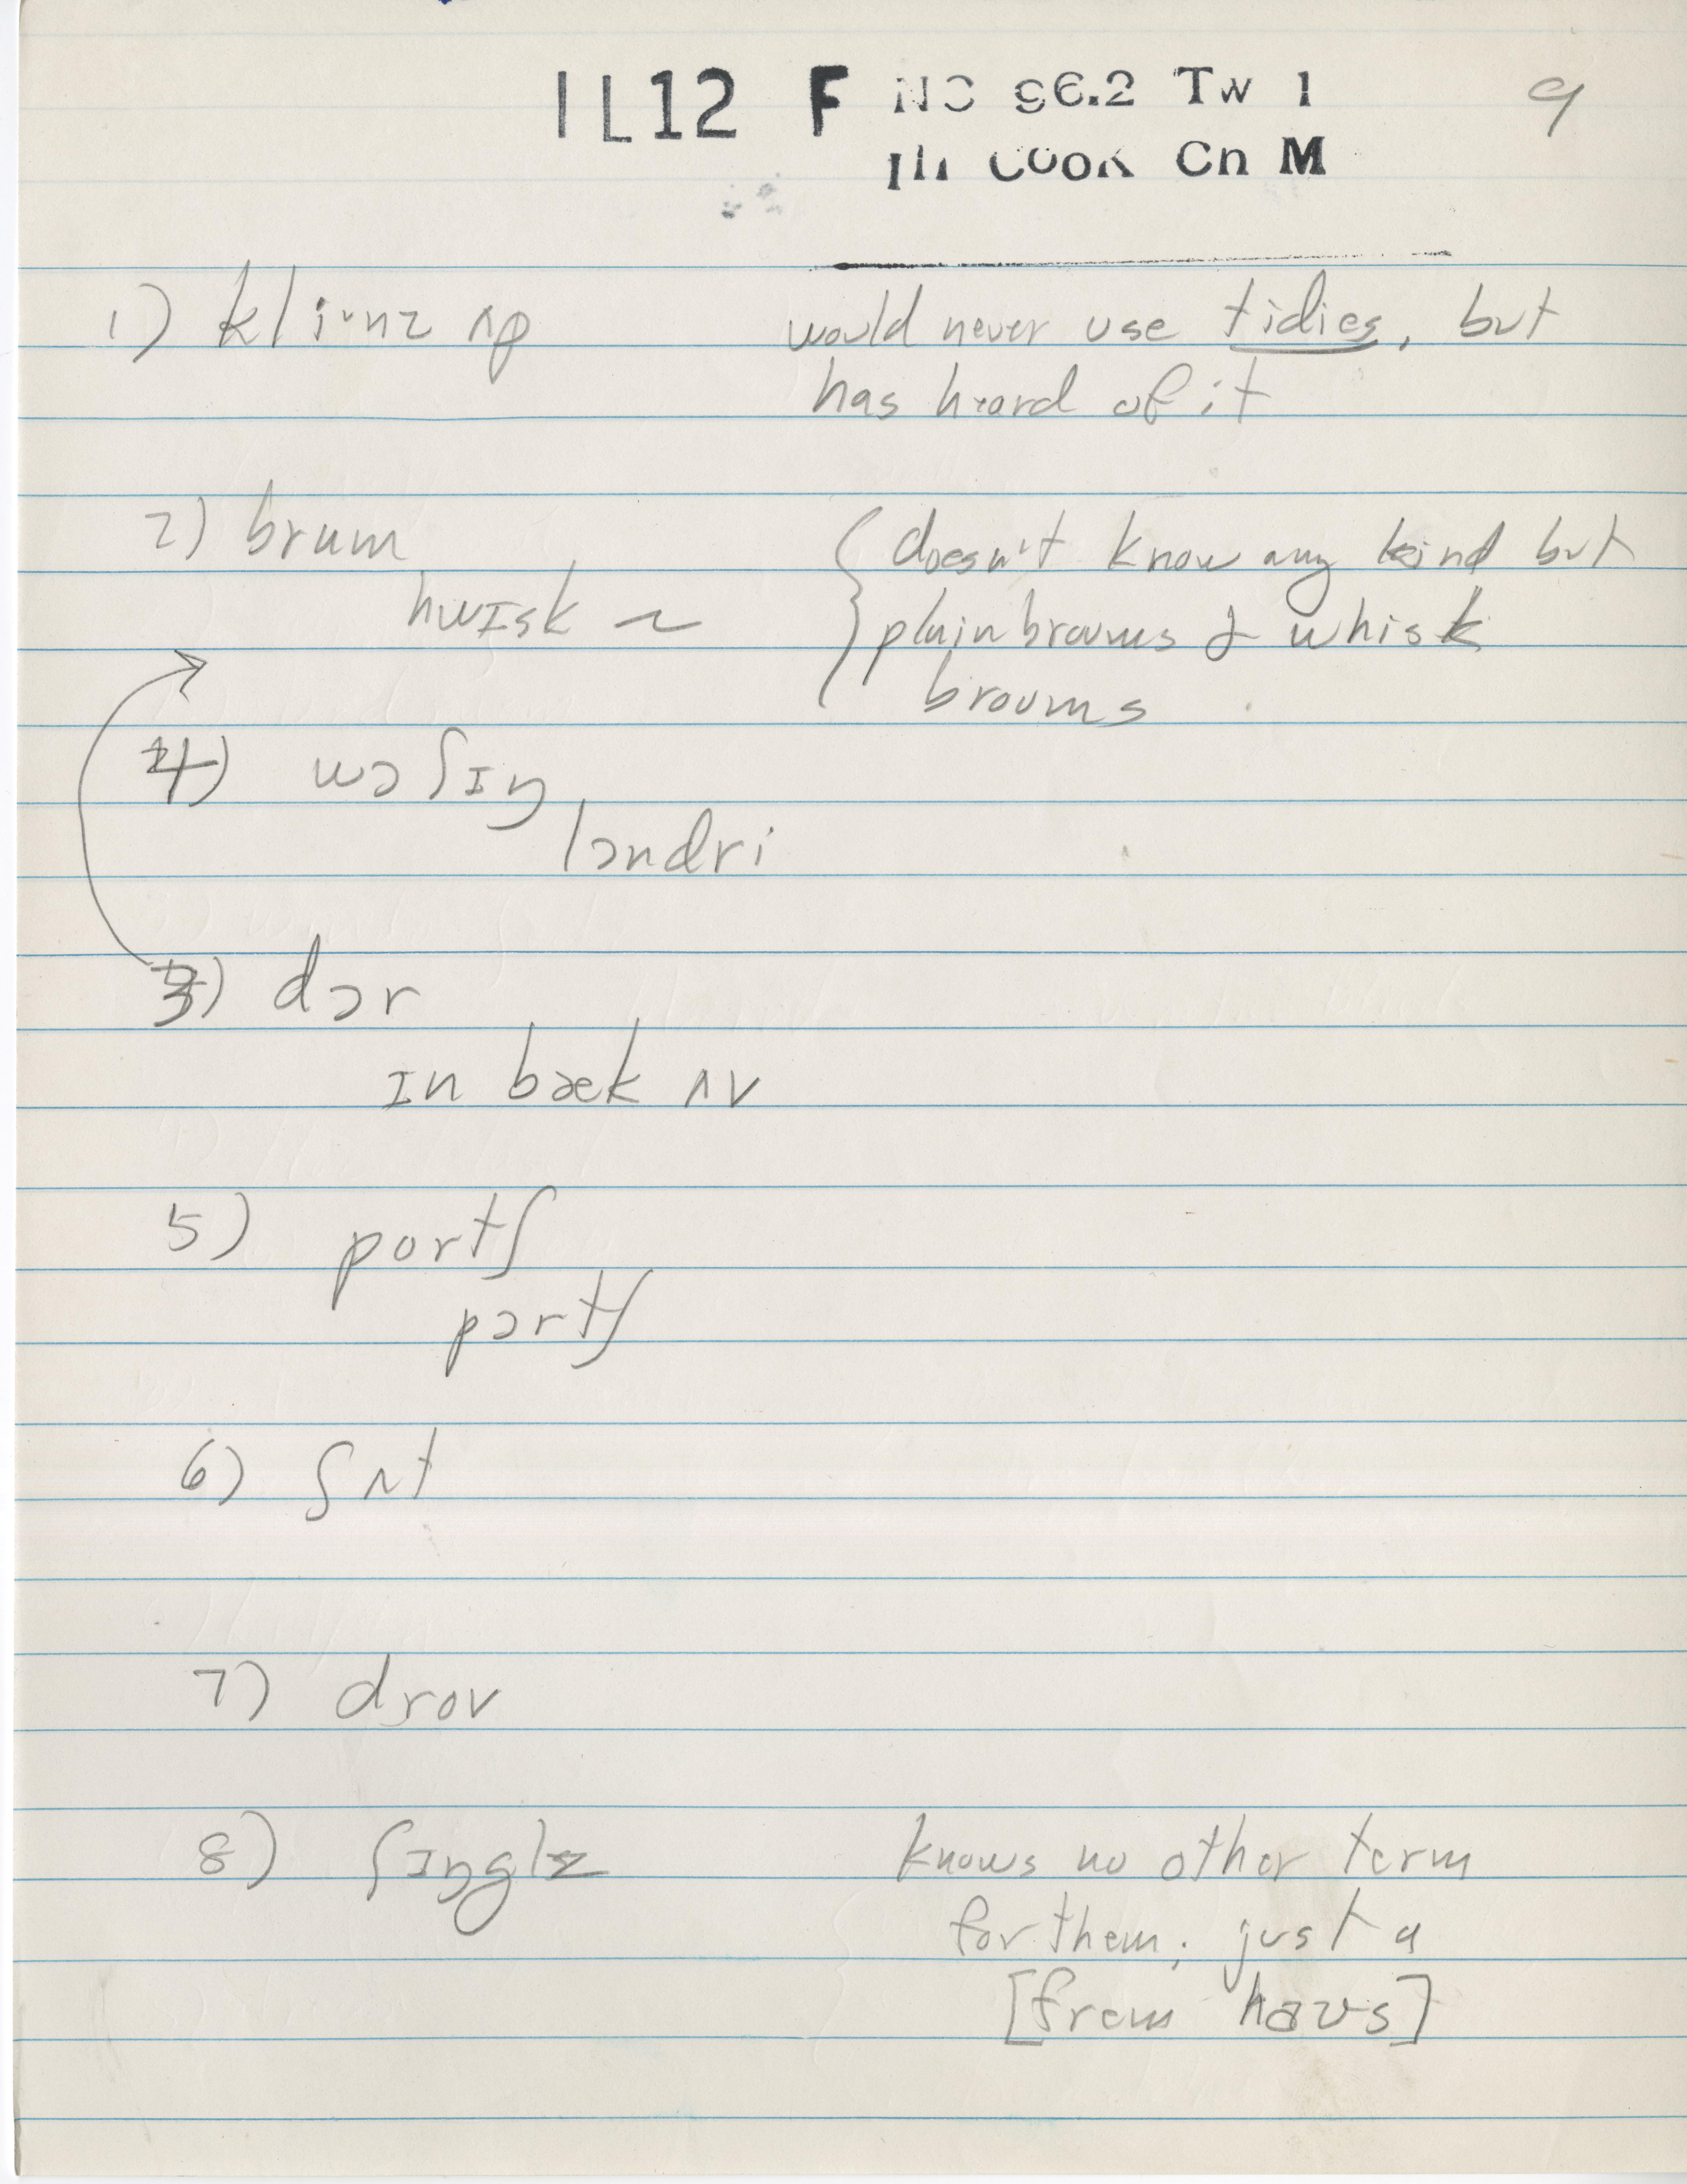 IL12 F NC 96.2 Tw 1 9
Ill Cook Cn M
1) kli·nz ʌp would never use tidies, but
has heard of it
2) brum doesn't know any kind but
hwɪsk ~ plain brooms & whisk
brooms
4) wɔʃɪŋ
lɔndri
3) dɔr
ɪn bæk ʌv
5) portʃ
pɔrtʃ
6) ʃʌt
7) drov
8) ʃɪŋglz knows no other term
for them; just a
[frem haʊs]